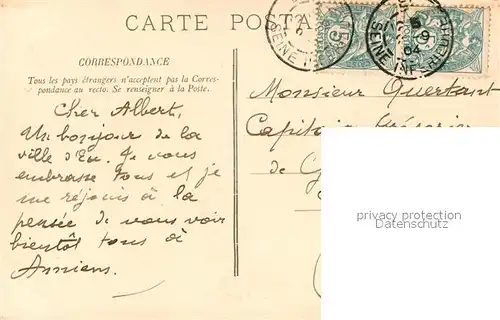 CARTE POSTA
CORRESPONDANCE
Tous les pays étrangers n'acceptent pas la Corres-
pondance au recto. Se renseigner à la Poste.
Cher Albert,
Un bonjour de la
ville d'Eu. Je vous
embrasse tous et je
me réjouis à la
pensée de vous voir
bientôt tous à
Amiens.
SEINE
SEINE
Monsieur Quertant
Capitaine
de
privacy protection
Datenschutz